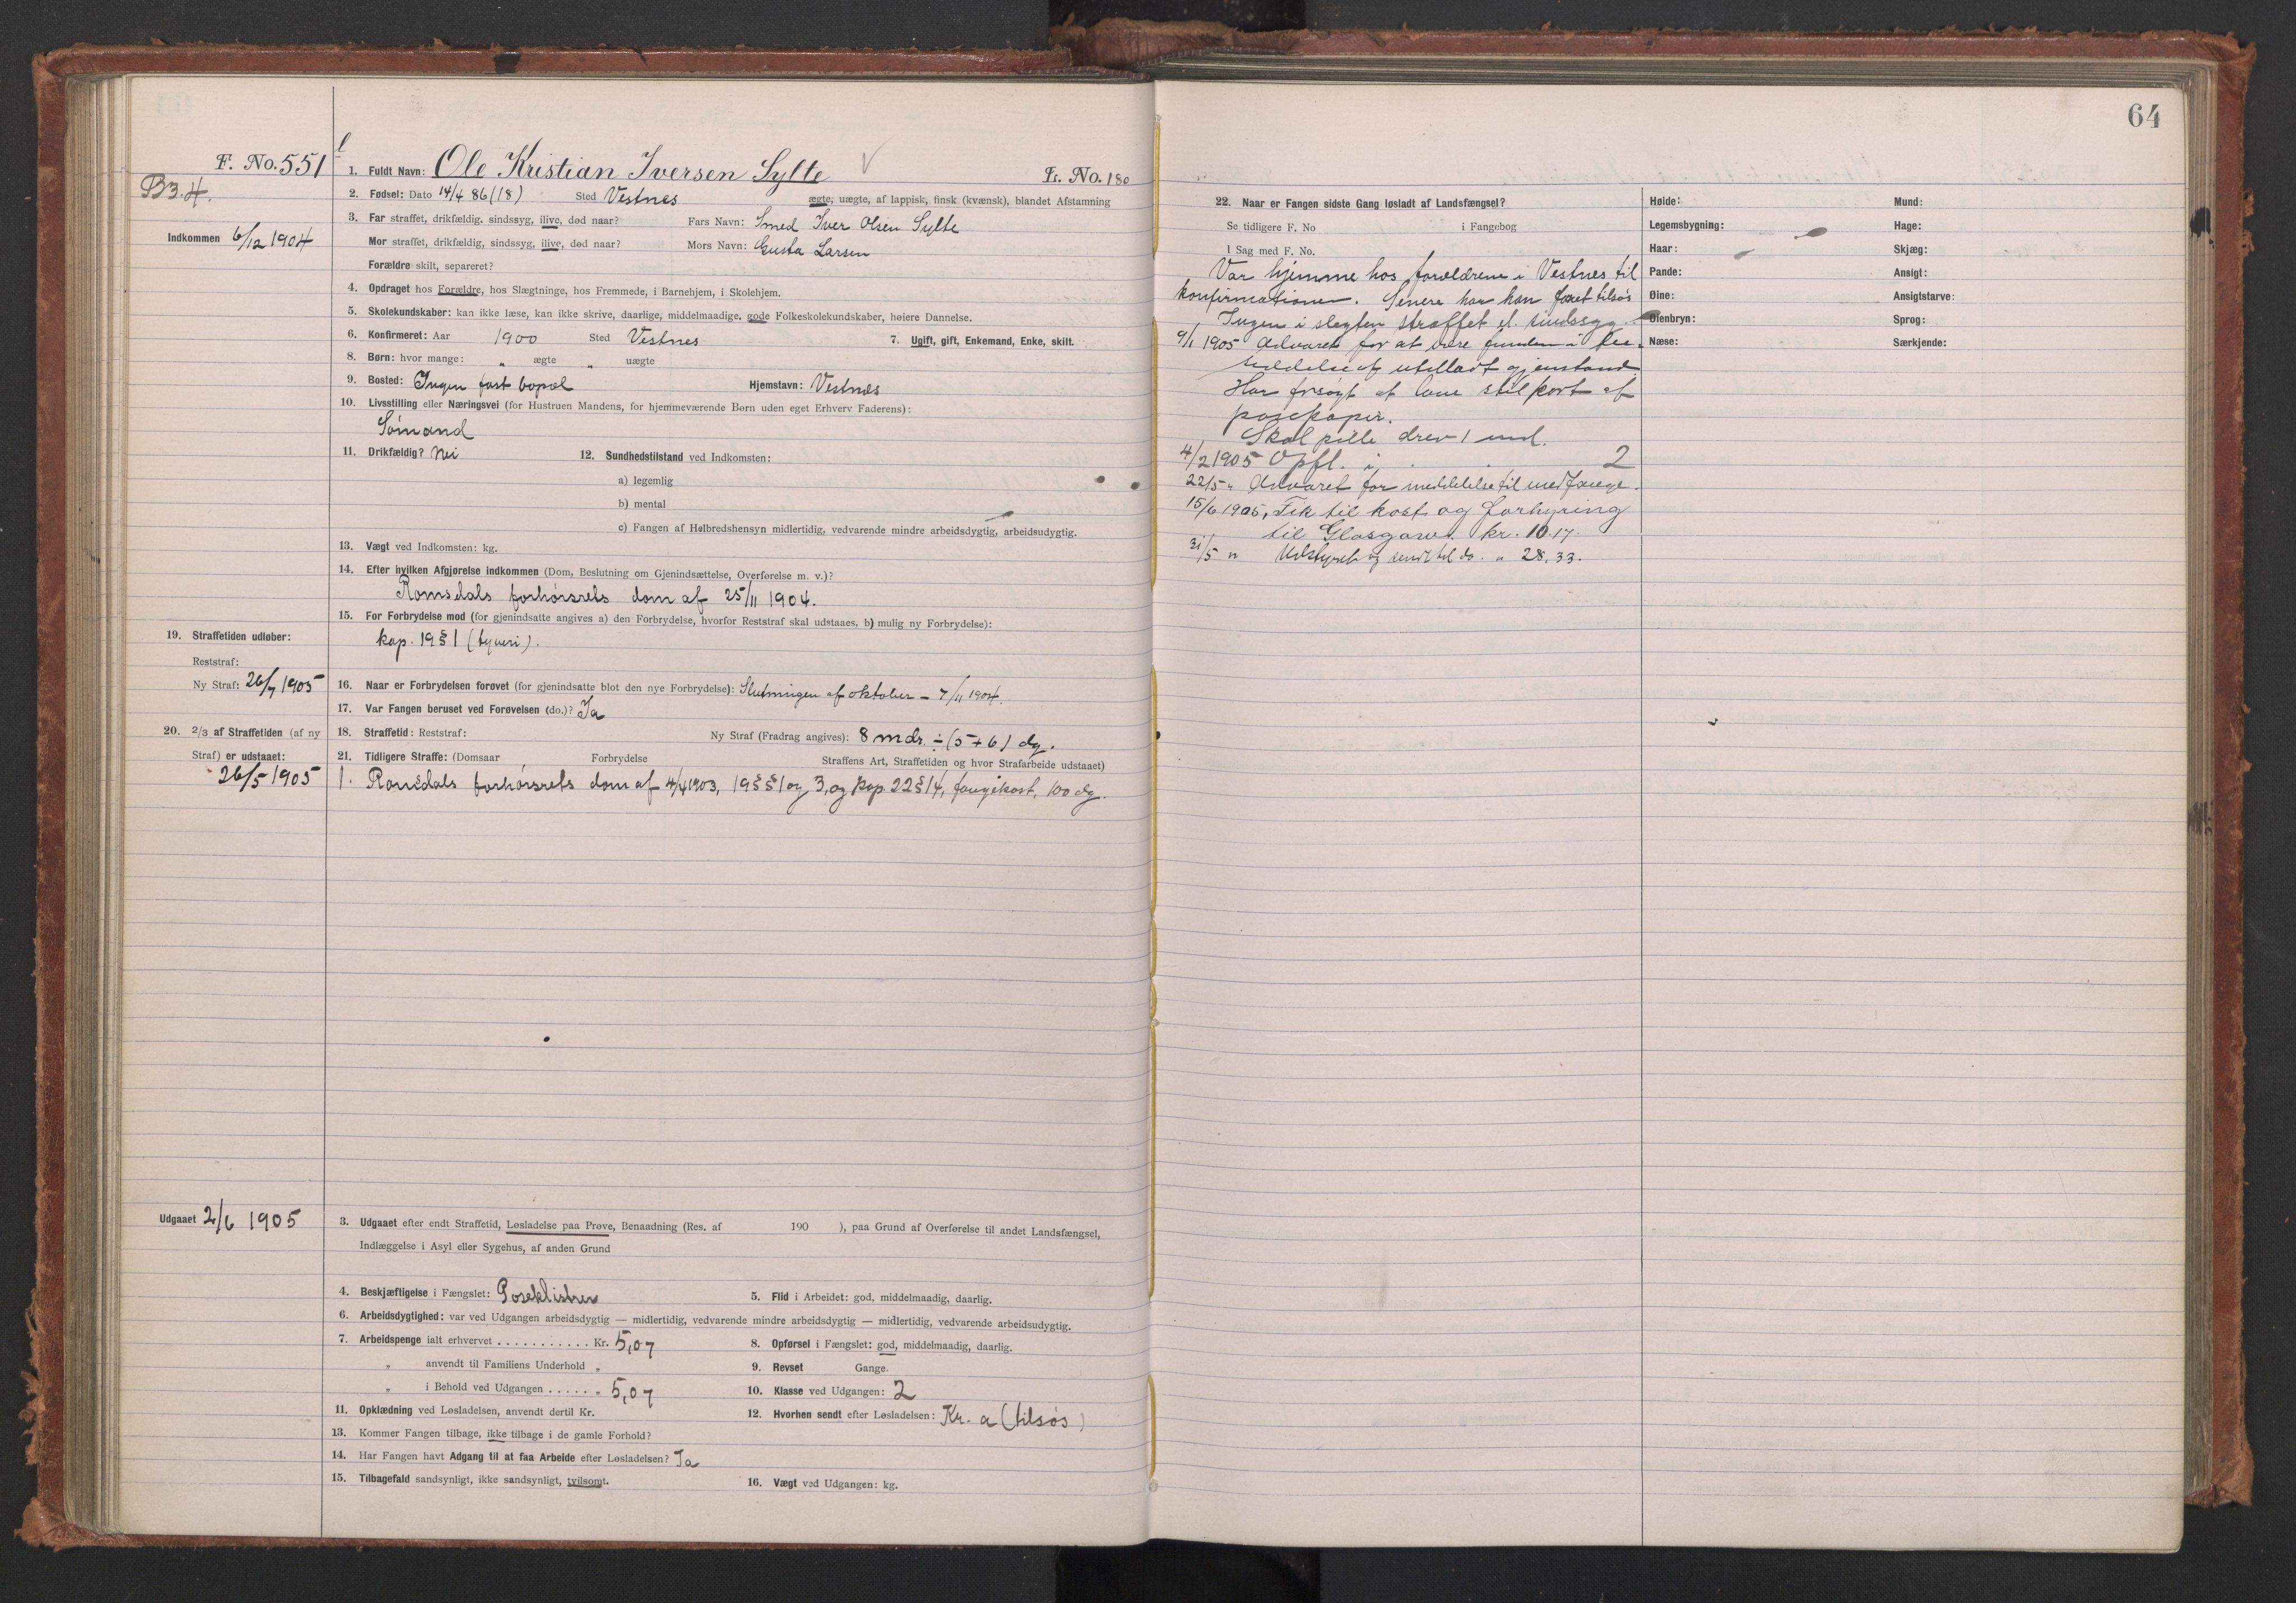 64
F. No. 551
B 3.4.
Indkommen 6/12 1904
1. Fuldt Navn: Ole Kristian Iversen Sylte
L. No. 180
2. Fødsel: Dato 14/4 86 (18) Sted Vestnes ægte, uægte, af lappisk, finsk (kvænsk), blandet Afstamning
3. Far straffet, drikfældig, sindssyg, ilive, død naar? Fars Navn: Smed Iver Olsen Sylte
Mor straffet, drikfældig, sindssyg, ilive, død naar? Mors Navn: Gusta Larsen
Forældre skilt, separeret?
4. Opdraget hos Forældre, hos Slægtninge, hos Fremmede, i Barnehjem, i Skolehjem.
5. Skolekundskaber: kan ikke læse, kan ikke skrive, daarlige, middelmaadige, gode Folkeskolekundskaber, høiere Dannelse.
6. Konfirmeret: Aar 1900 Sted Vestnes 7. Ugift, gift, Enkemand, Enke, skilt.
8. Børn: hvor mange: „ ægte „ uægte
9. Bosted: Ingen fast bopæl Hjemstavn: Vestnæs
10. Livsstilling eller Næringsvei (for Hustruen Mandens, for hjemmeværende Børn uden eget Erhverv Faderens):
Sømand
11. Drikfældig? Nei 12. Sundhedstilstand ved Indkomsten:
a) legemlig
b) mental
c) Fangen af Helbredshensyn midlertidig, vedvarende mindre arbeidsdygtig, arbeidsudygtig.
13. Vægt ved Indkomsten: kg.
14. Efter hvilken Afgjørelse indkommen (Dom, Beslutning om Gjenindsættelse, Overførelse m. v.)?
Romsdals forhørsrets dom af 25/11 1904.
15. For Forbrydelse mod (for gjenindsatte angives a) den Forbrydelse, hvorfor Reststraf skal udstaaes, b) mulig ny Forbrydelse):
kap. 19 § 1 (tyveri).
19. Straffetiden udløber:
Reststraf:
Ny Straf: 26/7 1905
16. Naar er Forbrydelsen forøvet (for gjenindsatte blot den nye Forbrydelse): Slutningen af oktober – 7/11 1904.
17. Var Fangen beruset ved Forøvelsen (do.)? Ja
20. 2/3 af Straffetiden (af ny
Straf) er udstaaet:
26/5 1905
18. Straffetid: Reststraf: Ny Straf (Fradrag angives): 8 mdr. ÷ (5+6) dg.
21. Tidligere Straffe: (Domsaar Forbrydelse Straffens Art, Straffetiden og hvor Strafarbeide udstaaet)
1. Romsdals forhørsrets dom af 4/4 1903, 19 §§ 1 og 3, og kap 22 § 14, fangekost, 100 dg.
Udgaaet 2/6 1905
3. Udgaaet efter endt Straffetid, Løsladelse paa Prøve, Benaadning (Res. af 190 ), paa Grund af Overførelse til andet Landsfængsel,
Indlæggelse i Asyl eller Sygehus, af anden Grund
4. Beskjæftigelse i Fængslet: Poseklistrer 5. Flid i Arbeidet: god, middelmaadig, daarlig.
6. Arbeidsdygtighed: var ved Udgangen arbeidsdygtig — midlertidig, vedvarende mindre arbeidsdygtig — midlertidig, vedvarende arbeidsudygtig.
7. Arbeidspenge ialt erhvervet . . . . . . . . . . . Kr. 5,07 8. Opførsel i Fængslet: god, middelmaadig, daarlig.
„ anvendt til Familiens Underhold „ 9. Revset Gange.
„ i Behold ved Udgangen . . . . . „ 5,07 10. Klasse ved Udgangen: 2
11. Opklædning ved Løsladelsen, anvendt dertil Kr. 12. Hvorhen sendt efter Løsladelsen: Kr. a (tilsøs)
13. Kommer Fangen tilbage, ikke tilbage i de gamle Forhold?
14. Har Fangen havt Adgang til at faa Arbeide efter Løsladelsen? Ja
15. Tilbagefald sandsynligt, ikke sandsynligt, tvilsomt. 16. Vægt ved Udgangen: kg.
22. Naar er Fangen sidste Gang løsladt af Landsfængsel?
Se tidligere F. No i Fangebog
I Sag med F. No.
Var hjemme hos forældrene i Vestnes til
konfirmationen. Senere har han faret tilsøs
Ingen i slegten straffet el. sindssyg.
9/1 1905 Advaret for at være funden i be-
siddelse af utilladt gjenstand.
Har forsøgt at lave stilkort af
posepapir.
Skal pille drev 1 md.
4/2 1905 Opfl. i 2
22/5 „ Advaret for meddelelse til medfange.
15/6 1905, Fik til kost og forhyring
til Glasgow kr. 10.17.
31/5 „ Udstyret og sendt til do. „ 28,33.
Høide:
Legemsbygning:
Haar:
Pande:
Øine:
Øienbryn:
Næse:
Mund:
Hage:
Skjæg:
Ansigt:
Ansigtstarve:
Sprog:
Særkjende: